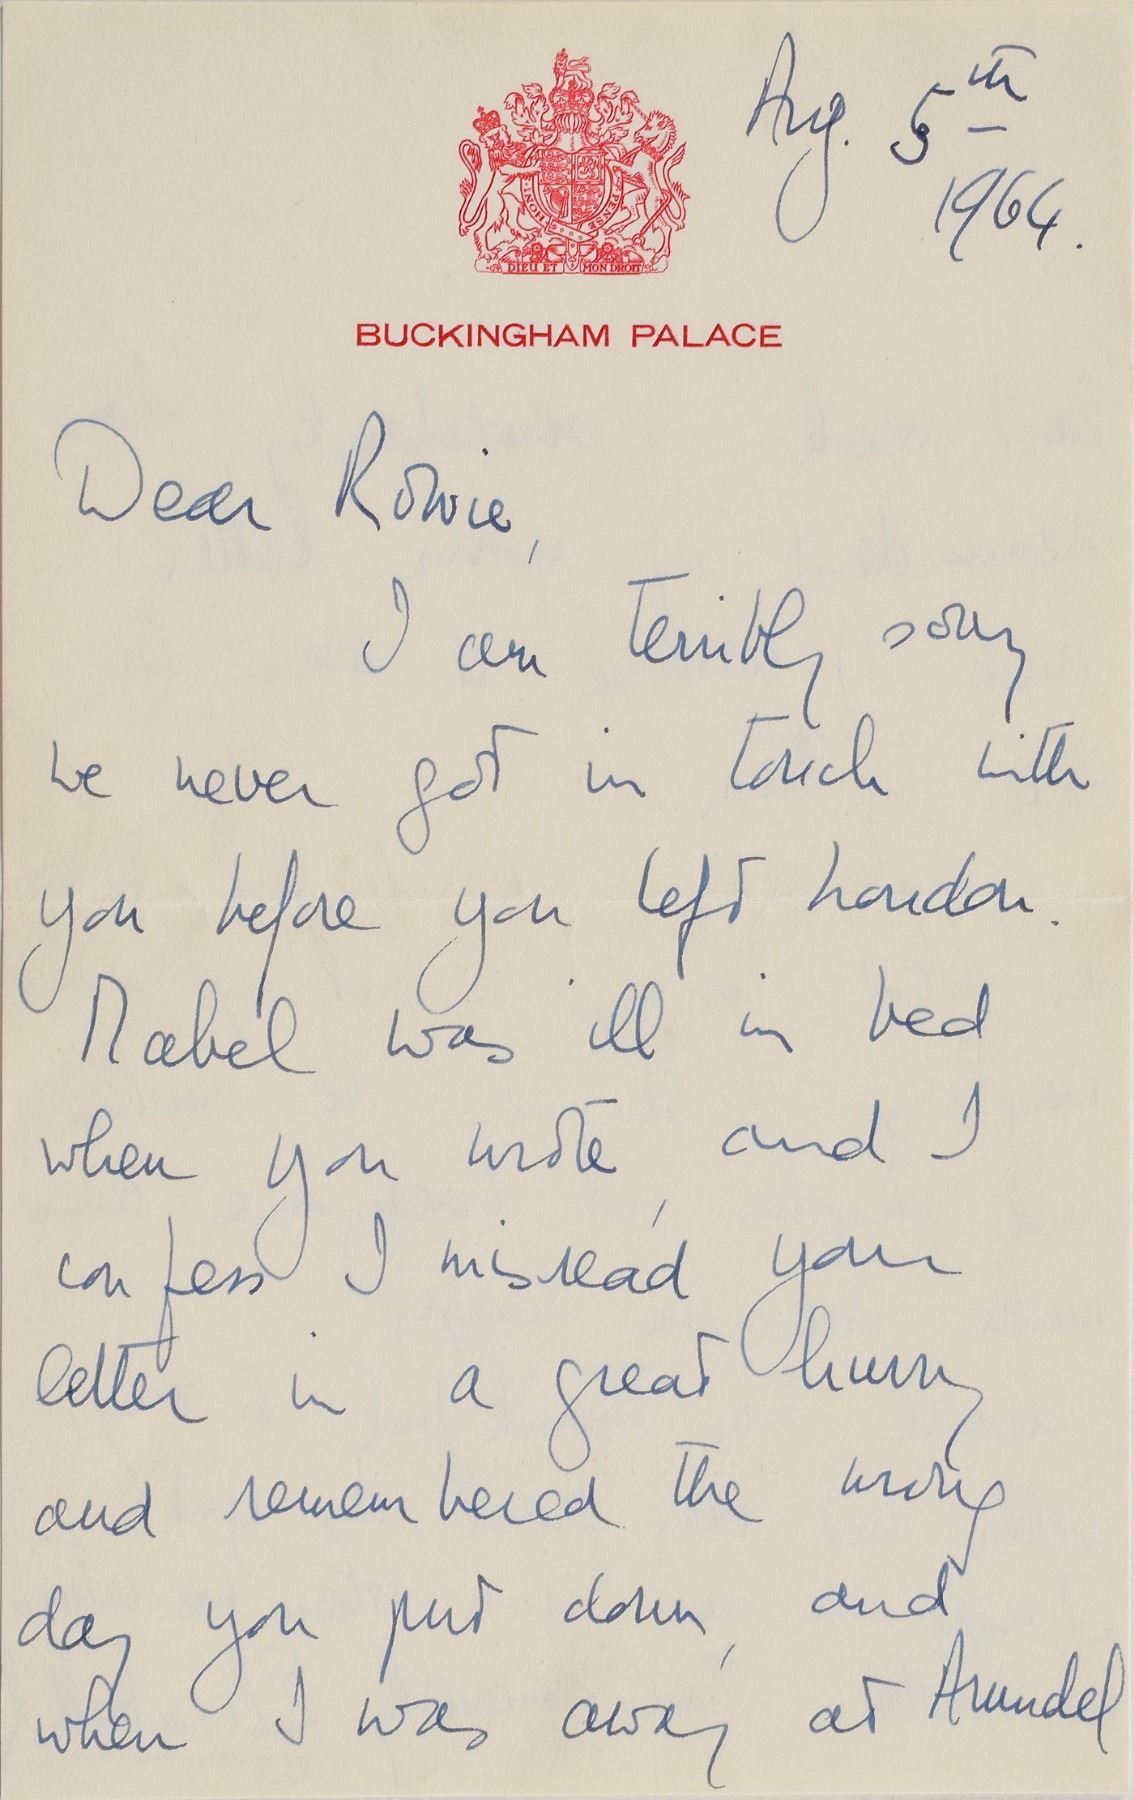 Aug. 5th
1964.
HONI PENSE
DIEU ET MON DROIT
BUCKINGHAM PALACE
Dear Rowie,
I am terribly sorry
we never got in touch with
you before you left London.
Mabel was ill in bed
when you wrote, and I
confess I misread your
letter in a great hurry
and remembered the wrong
day you put down, and
when I was away at Arundel